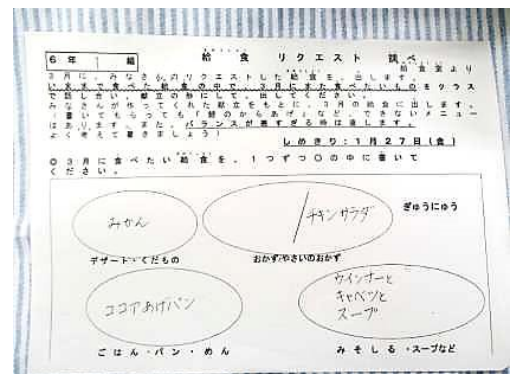 6年 1 組
給食 リクエスト 調べ
給食室より
3月に、みなさんのリクエストした給食を、出します。
いままで食べた給食の中で、3月にまた食べたいものをクラス
で話し合い、献立の形にして、出してください。
みなさんが作ってくれた献立をもとに、3月の給食に出します。
(書いてもらっても「鯨のからあげ」など、できないメニュー
はあります。また、バランスが悪すぎる時は直します。
よく考えて書きましょう!
しめきり:1月27日(金)
◎3月に食べたい給食を、1つずつ○の中に書いて
ください。
みかん
/チキンサラダ
ぎゅうにゅう
デザート・くだもの
おかず/やさいのおかず
ココアあげパン
ウインナーと
キャベツと
スープ
ごはん・パン・めん
みそしる・スープなど